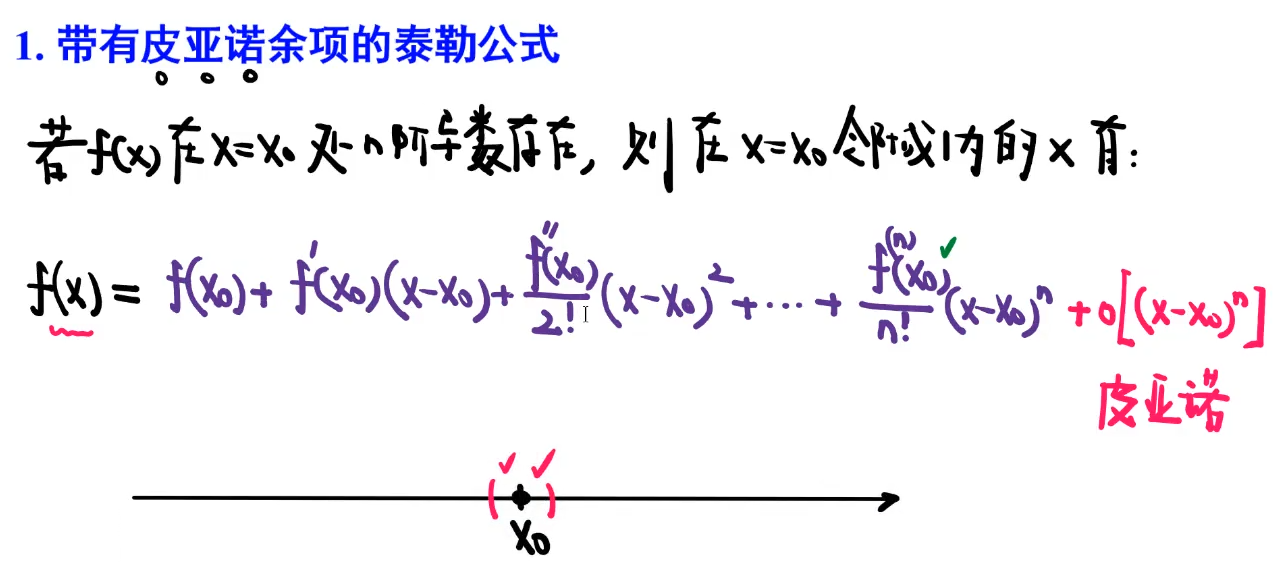 1. 带有皮亚诺余项的泰勒公式
若f(x)在x=x₀处n阶导数存在，则在x=x₀邻域内的x有：
f(x)= f(x₀)+f'(x₀)(x-x₀)+\frac{f''(x₀)}{2!}(x-x₀)²+⋯+\frac{f⁽ⁿ⁾(x₀)}{n!}(x-x₀)ⁿ+o[(x-x₀)ⁿ]
皮亚诺
x₀